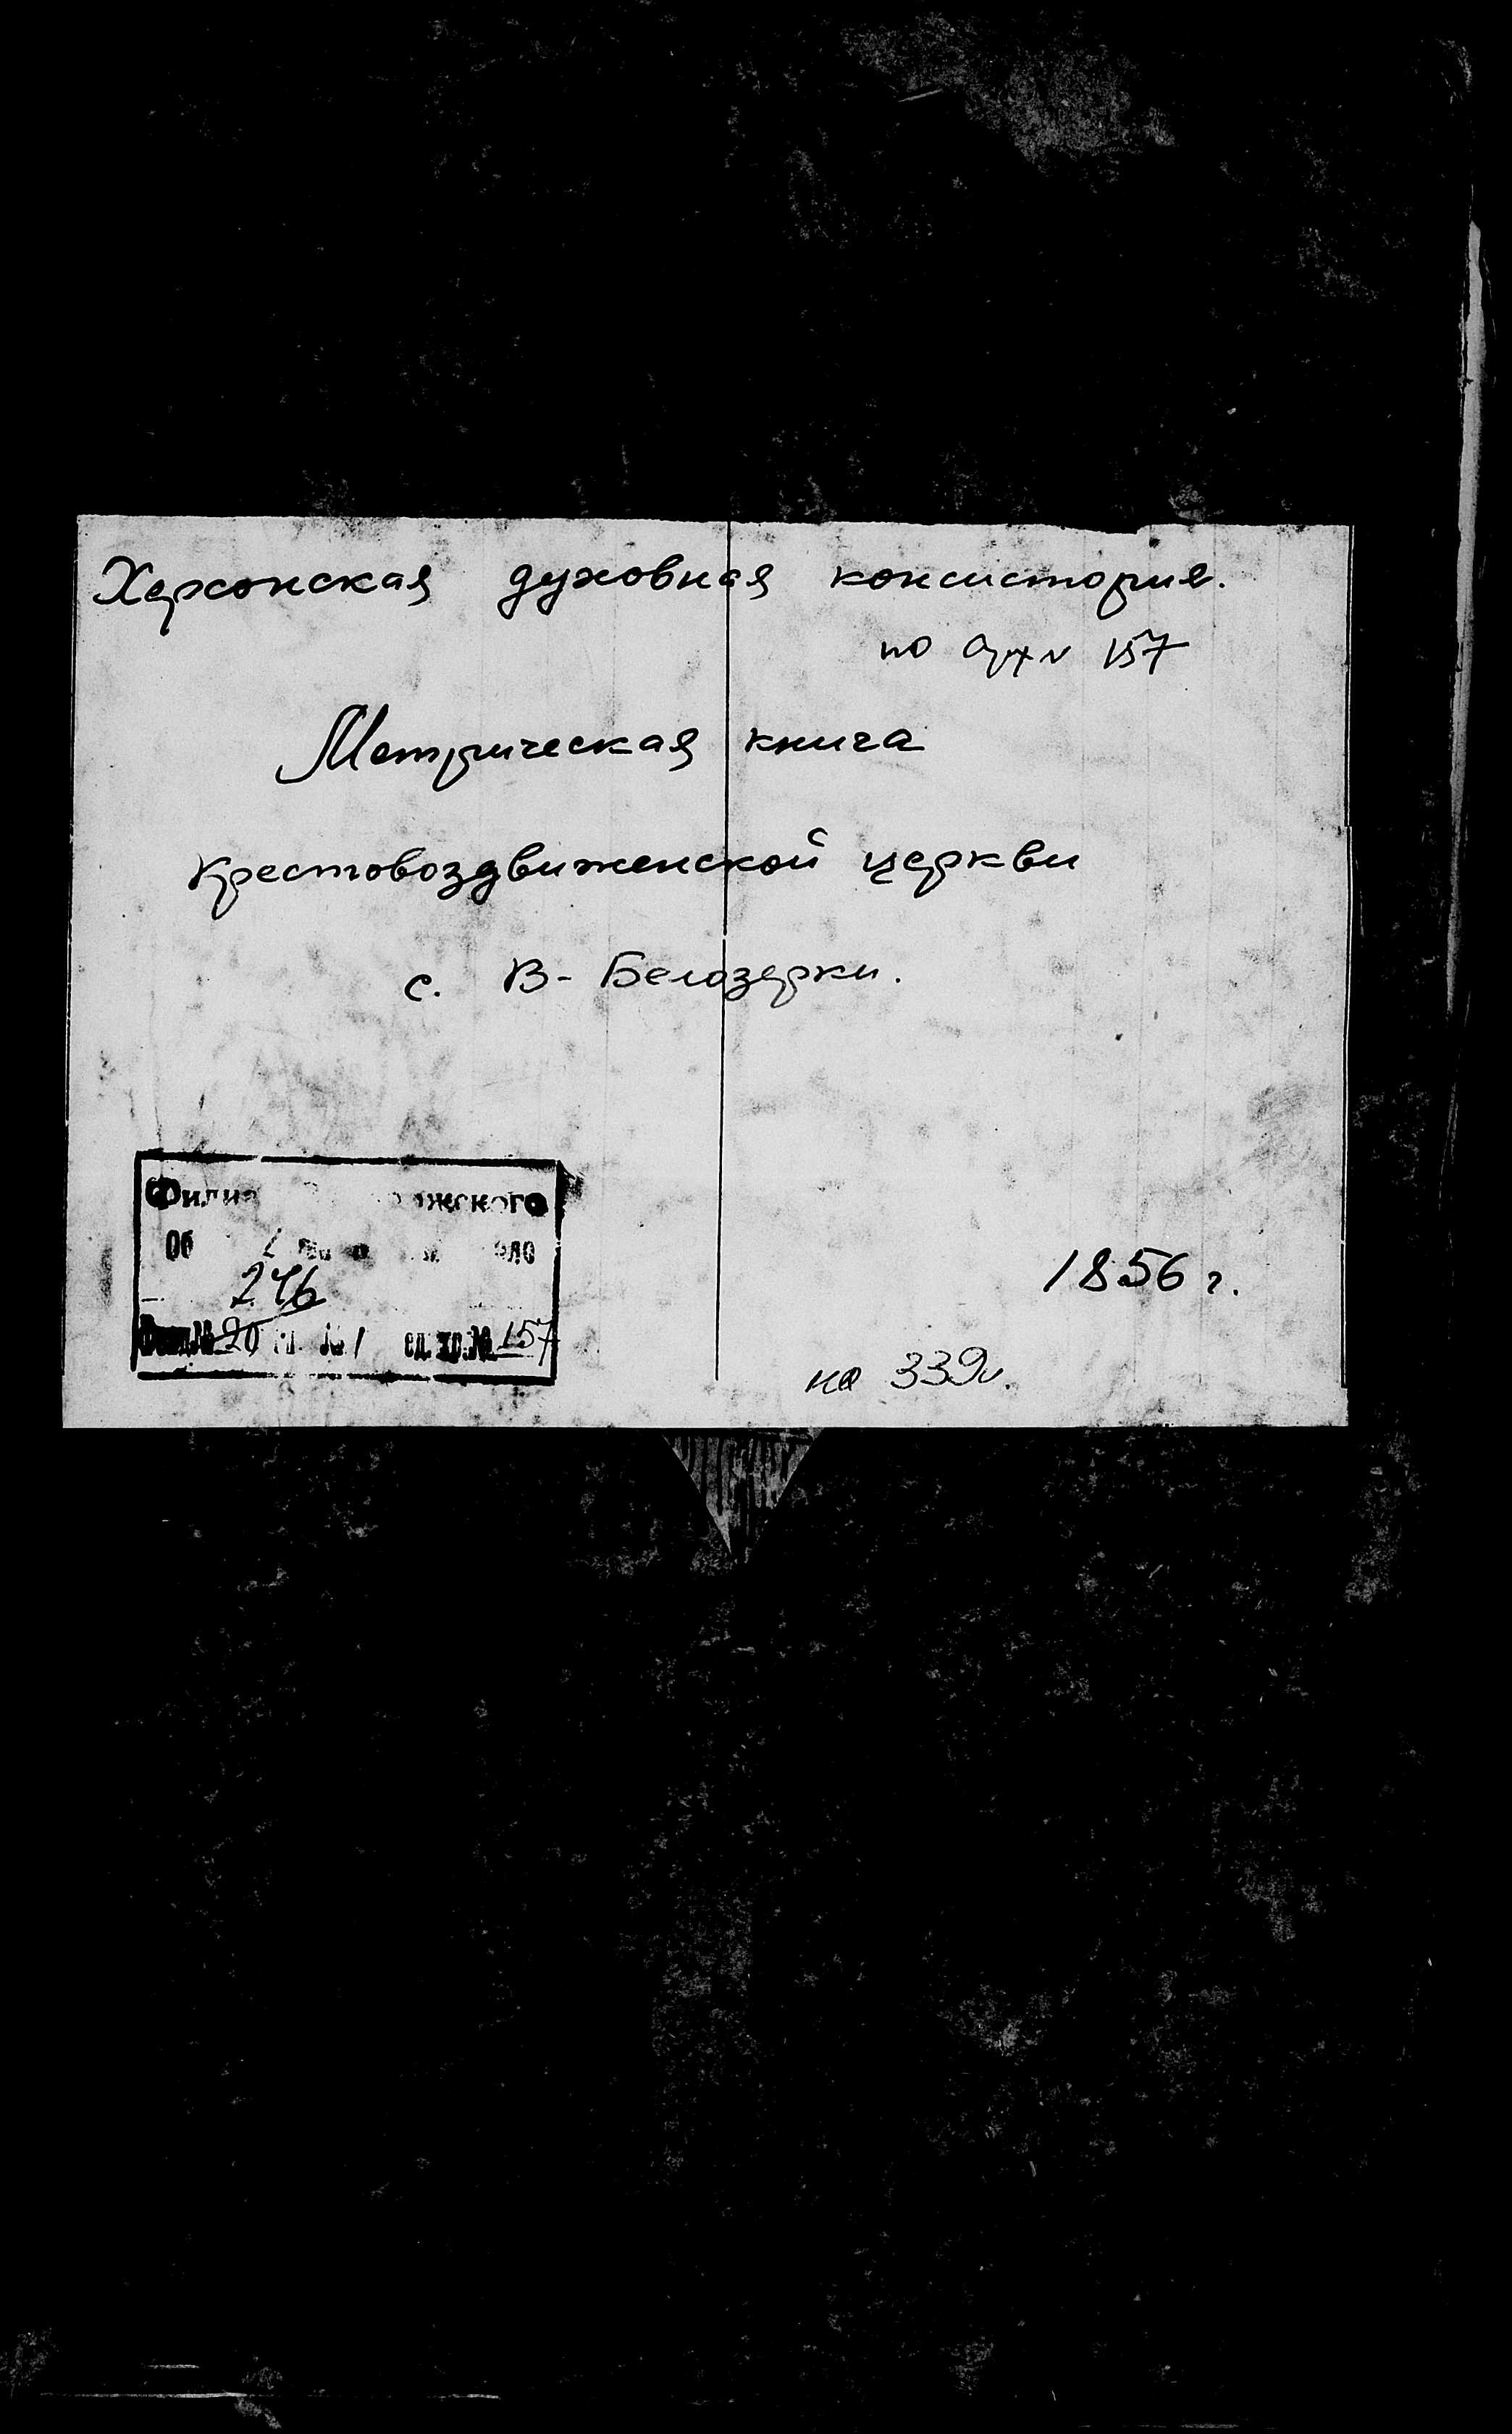 Херсонская духовная консистория.
по 157
Метрическая книга
Крестовоздвиженской церкви
с. В-Белозерки.
Фили жского
Об
246
1856 г.
Фонд № 20 № 1 ед. хр. № 157
на 339 л.